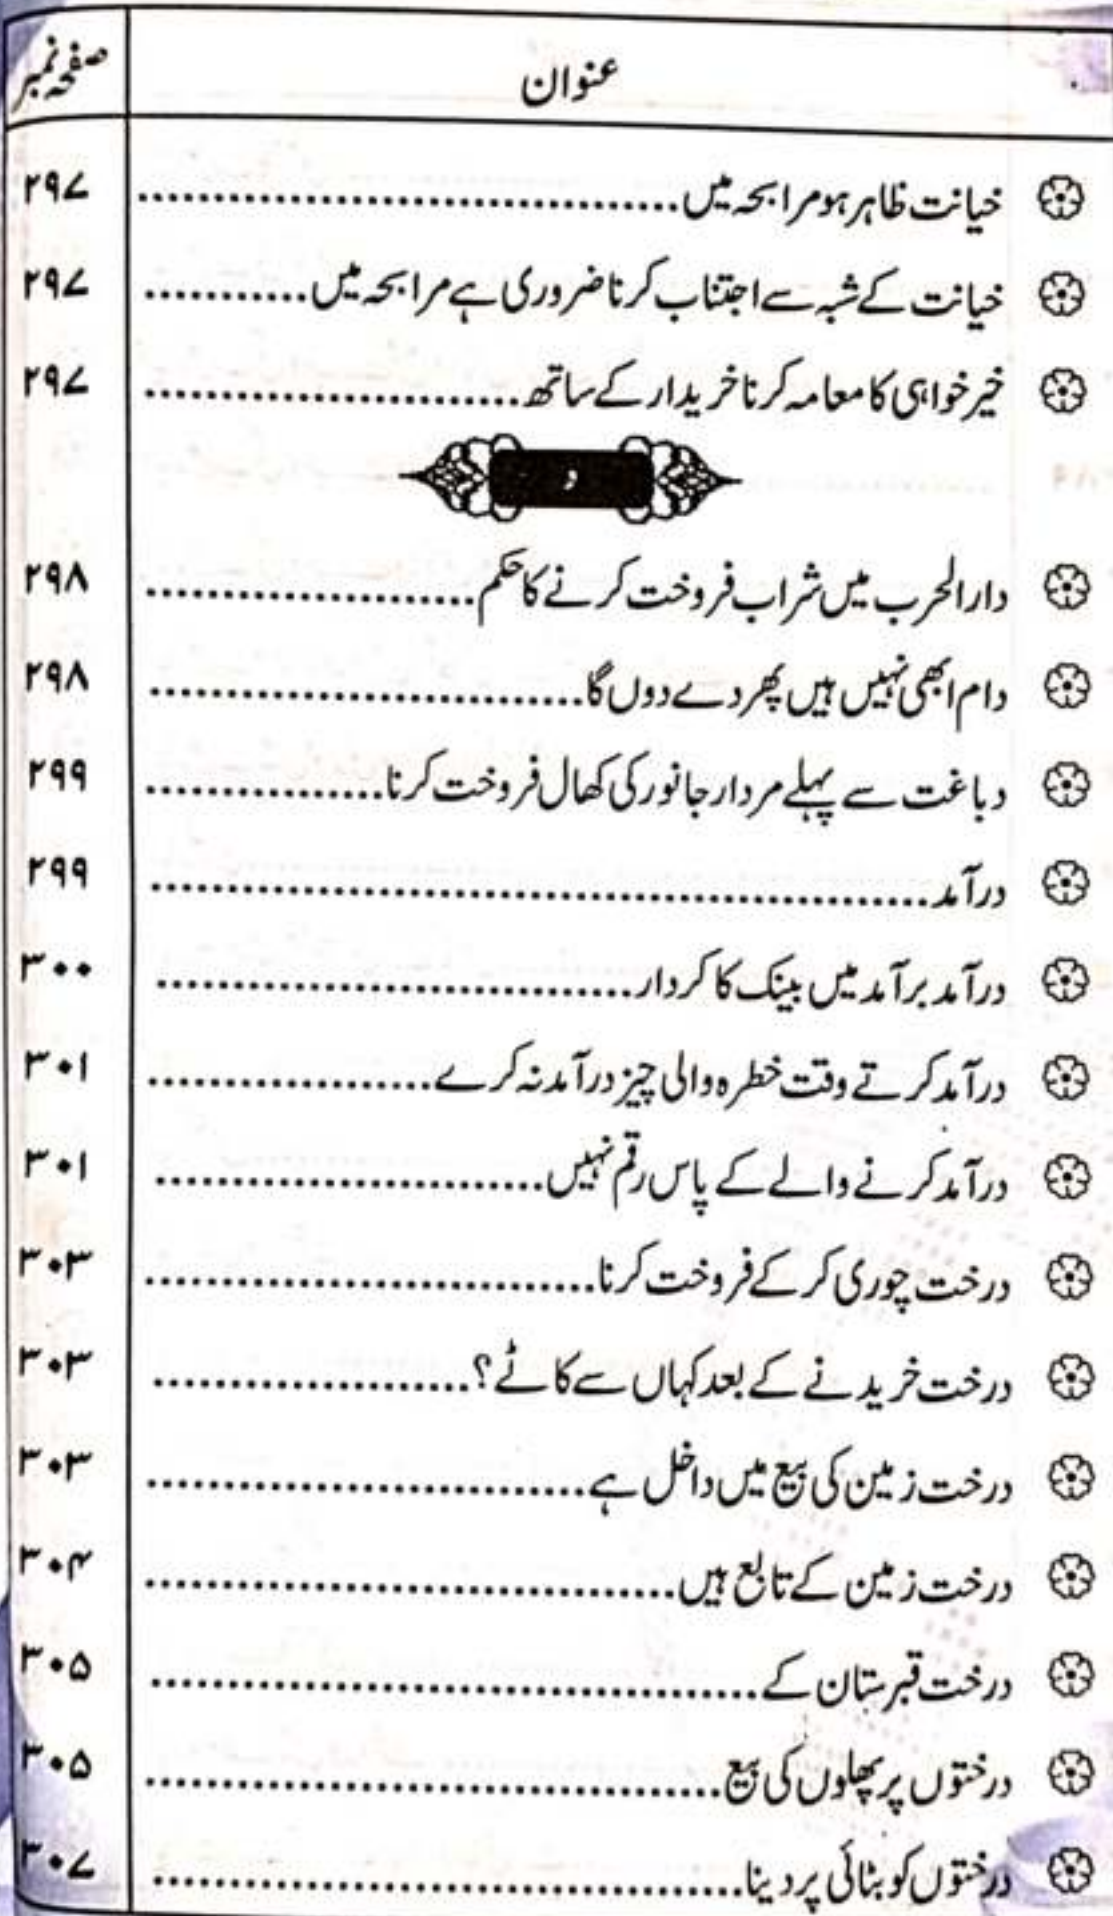 عنوان صفحہ نمبر
خیانت ظاہر ہو مرابحہ میں................................... ۲۹۷
خیانت کے شبہ سے اجتناب کرنا ضروری ہے مرابحہ میں........... ۲۹۷
خیر خواہی کا معامہ کرنا خریدار کے ساتھ......................... ۲۹۷
د
دارالحرب میں شراب فروخت کرنے کا حکم...................... ۲۹۸
دام ابھی نہیں ہیں پھر دے دوں گا............................. ۲۹۸
دباغت سے پہلے مردار جانور کی کھال فروخت کرنا................ ۲۹۹
درآمد.................................................... ۲۹۹
درآمد برآمد میں بینک کا کردار................................ ۳۰۰
درآمد کرتے وقت خطرہ والی چیز درآمد نہ کرے................... ۳۰۱
درآمد کرنے والے کے پاس رقم نہیں.......................... ۳۰۱
درخت چوری کر کے فروخت کرنا.............................. ۳۰۳
درخت خریدنے کے بعد کہاں سے کاٹے؟..................... ۳۰۳
درخت زمین کی بیع میں داخل ہے............................. ۳۰۳
درخت زمین کے تابع ہیں................................... ۳۰۴
درخت قبرستان کے........................................ ۳۰۵
درختوں پر پھلوں کی بیع...................................... ۳۰۵
درختوں کو بٹائی پر دینا....................................... ۳۰۷